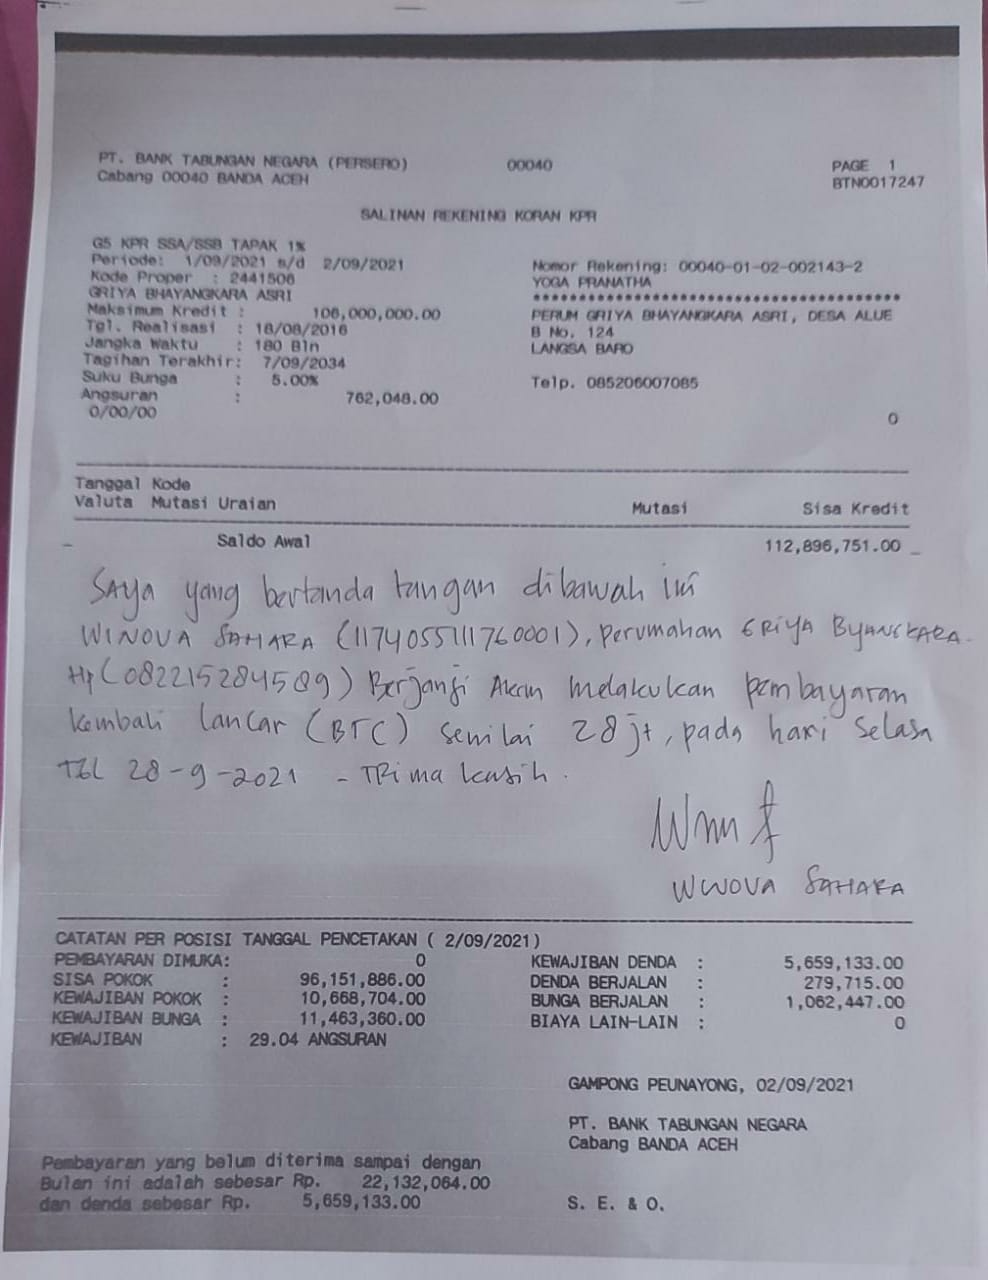 PT. BANK TABUNGAN NEGARA (PERSERO) 00040 PAGE 1
Cabang 00040 BANDA ACEH BTN0017247
SALINAN REKENING KORAN KPR
G5 KPR SSA/SSB TAPAK 1%
Periode: 1/09/2021 s/d 2/09/2021
Kode Proper : 2441506
GRIYA BHAYANGKARA ASRI
Maksimum Kredit : 106,000,000.00
Tgl. Realisasi : 18/08/2016
Jangka Waktu : 180 Bln
Tagihan Terakhir: 7/09/2034
Suku Bunga : 5.00%
Angsuran : 762,048.00
0/00/00
Nomor Rekening: 00040-01-02-002143-2
YOGA PRANATHA
****************************************
PERUM GRIYA BHAYANGKARA ASRI, DESA ALUE
B No. 124
LANGSA BARO
Telp. 085206007085
0
Tanggal Kode
Valuta Mutasi Uraian Mutasi Sisa Kredit
Saldo Awal 112,896,751.00
Saya yang bertanda tangan dibawah ini
WINOVA SAHARA (1174055111760001), perumahan GRIYA BYANGKARA.
Hp (082215284589) Berjanji Akan melakukan pembayaran
kembali lancar (BTC) senilai 28 jt, pada hari Selasa
TGL 28-9-2021 - TRima kasih.
WINOVA SAHARA
CATATAN PER POSISI TANGGAL PENCETAKAN ( 2/09/2021)
PEMBAYARAN DIMUKA: 0
SISA POKOK : 96,151,886.00
KEWAJIBAN POKOK : 10,668,704.00
KEWAJIBAN BUNGA : 11,463,360.00
KEWAJIBAN : 29.04 ANGSURAN
KEWAJIBAN DENDA : 5,659,133.00
DENDA BERJALAN : 279,715.00
BUNGA BERJALAN : 1,062,447.00
BIAYA LAIN-LAIN : 0
GAMPONG PEUNAYONG, 02/09/2021
PT. BANK TABUNGAN NEGARA
Cabang BANDA ACEH
Pembayaran yang belum diterima sampai dengan
Bulan ini adalah sebesar Rp. 22,132,064.00
dan denda sebesar Rp. 5,659,133.00
S. E. & O.